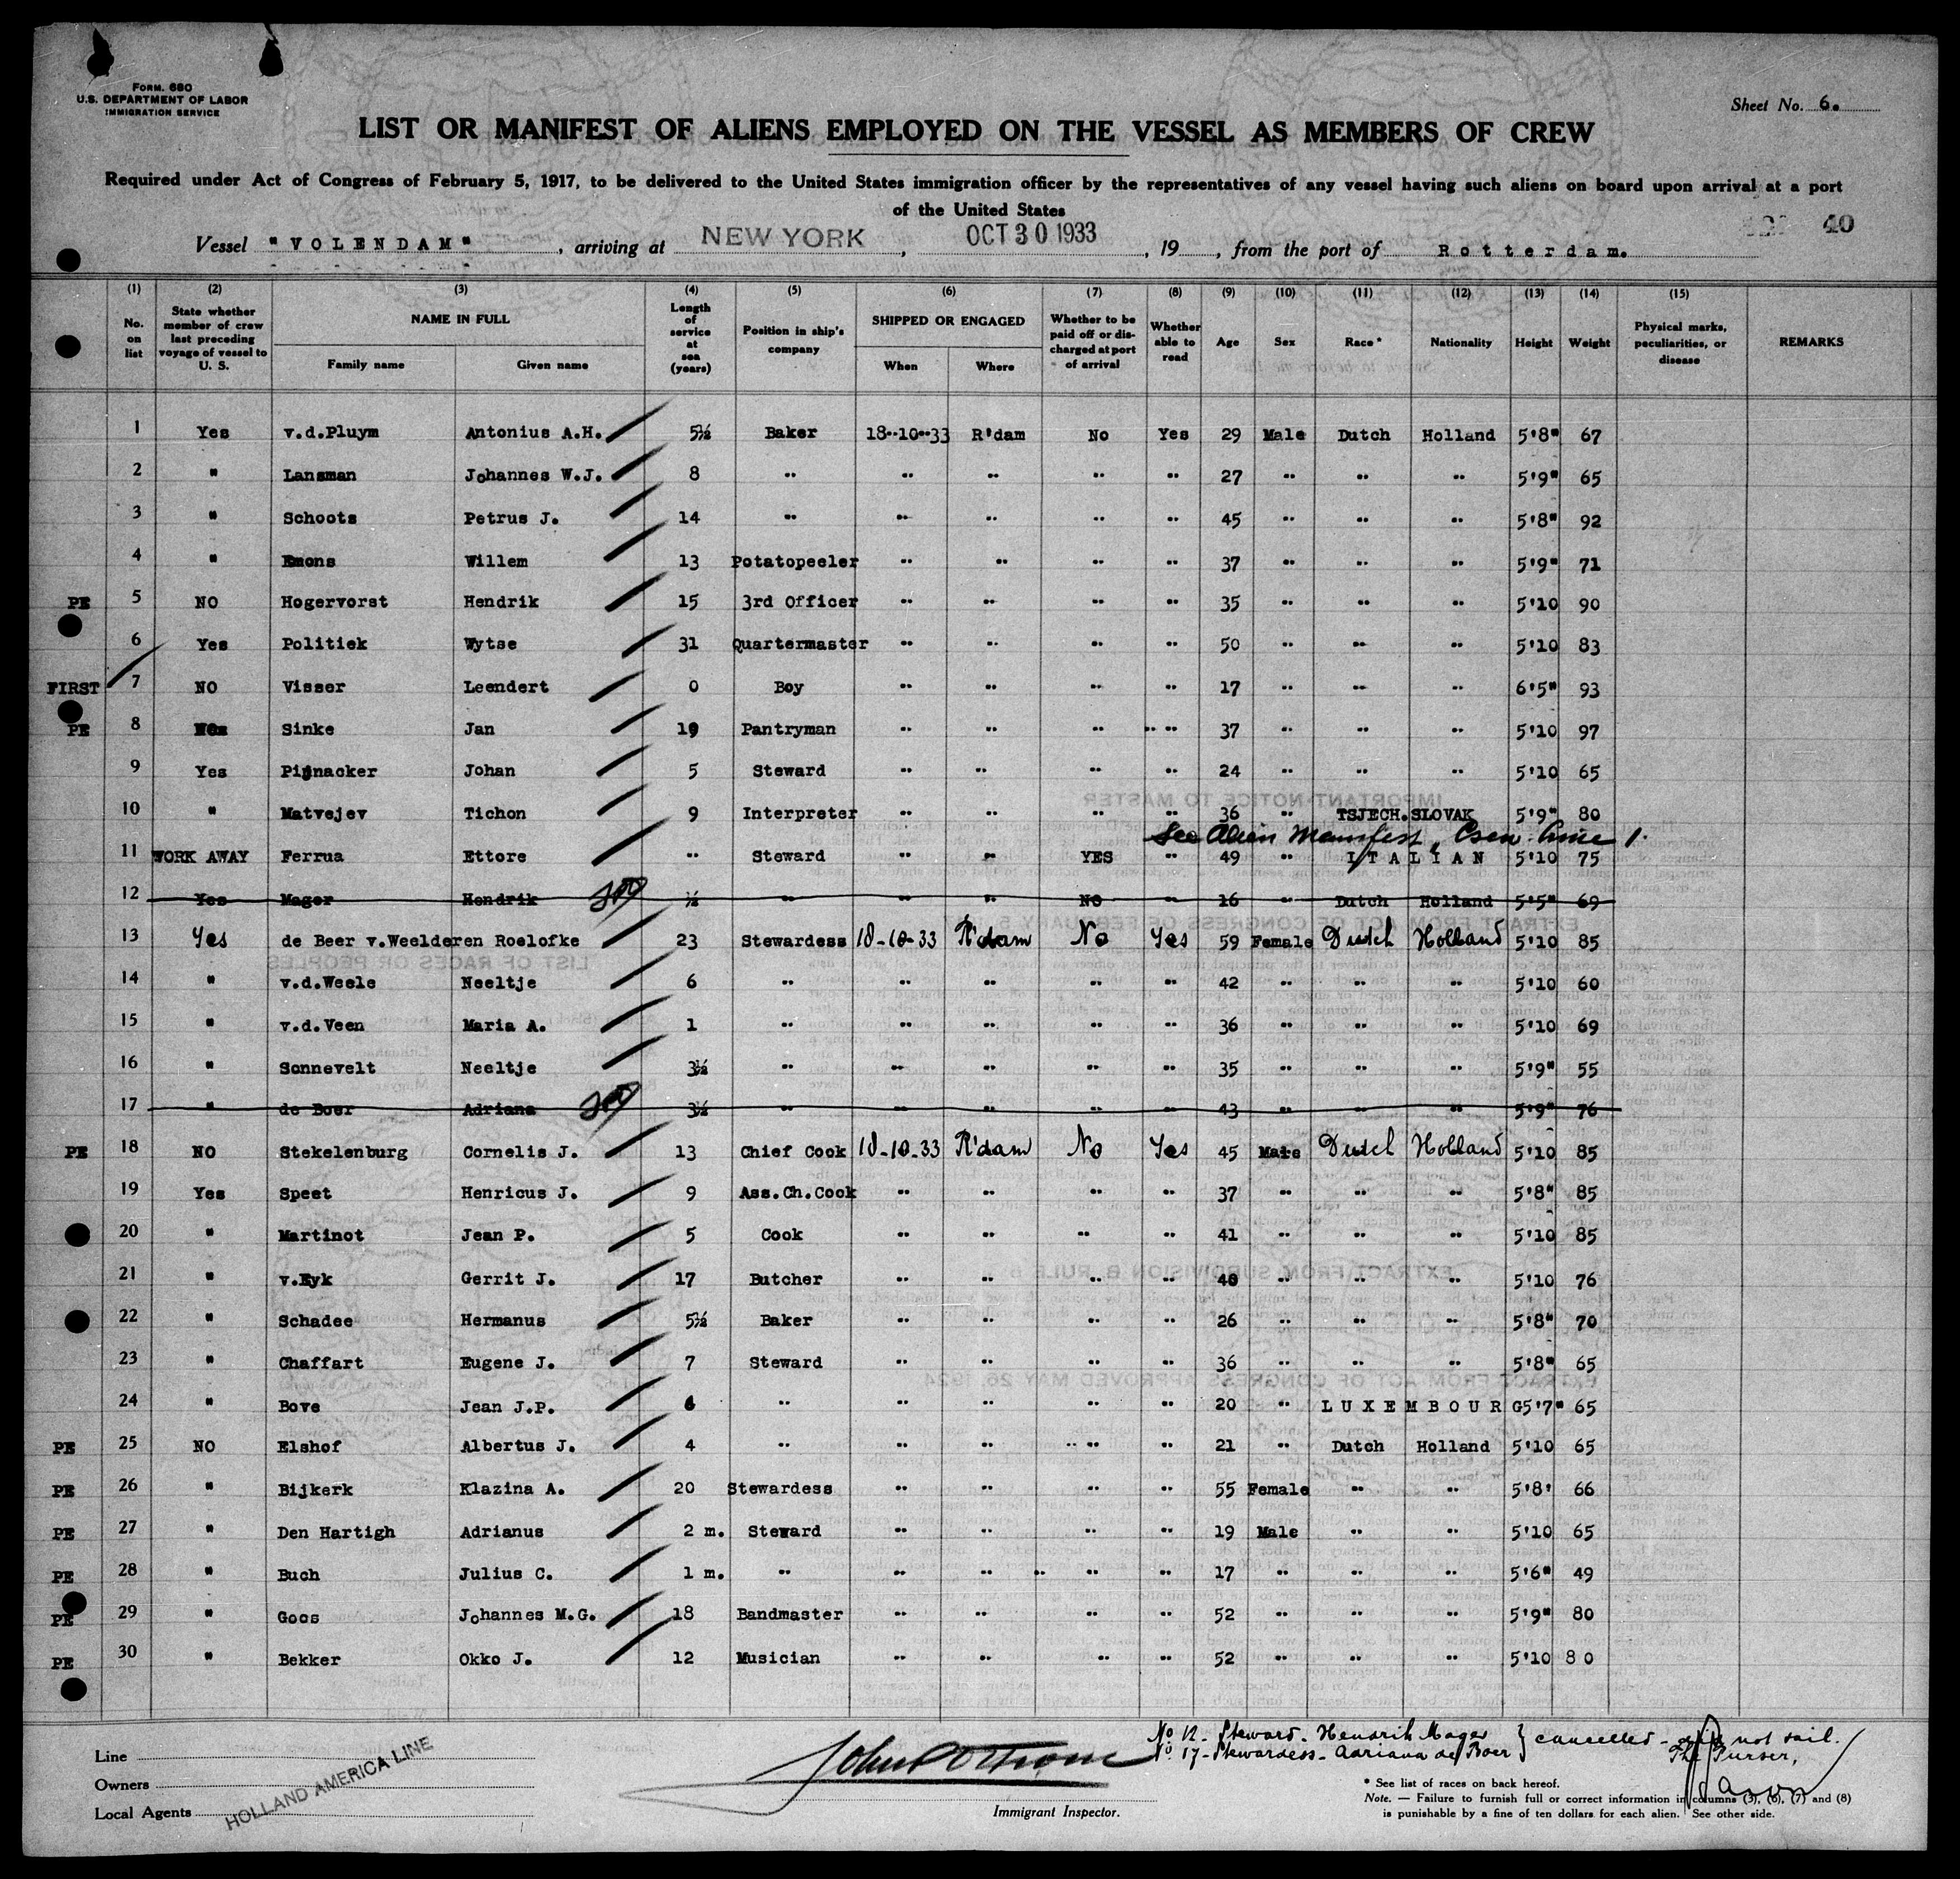 Form. 680
U.S. DEPARTMENT OF LABOR
IMMIGRATION SERVICE
Sheet No. 6.
LIST OR MANIFEST OF ALIENS EMPLOYED ON THE VESSEL AS MEMBERS OF CREW
Required under Act of Congress of February 5, 1917, to be delivered to the United States immigration officer by the representatives of any vessel having such aliens on board upon arrival at a port
of the United States
40
Vessel "VOLENDAM", arriving at NEW YORK, OCT 30 1933, 19, from the port of Rotterdam.
(1) (2) (3) (4) (5) (6) (7) (8) (9) (10) (11) (12) (13) (14) (15)
No. on list State whether member of crew last preceding voyage of vessel to U. S. NAME IN FULL Family name Given name Length of service at sea (years) Position in ship's company SHIPPED OR ENGAGED When Where Whether to be paid off or discharged at port of arrival Whether able to read Age Sex Race * Nationality Height Weight Physical marks, peculiarities, or disease REMARKS
1 Yes v.d.Pluym Antonius A.H. 5½ Baker 18-10-33 R'dam No Yes 29 Male Dutch Holland 5'8" 67
2 " Lansman Johannes W.J. 8 " " " " " 27 " " " 5'9" 65
3 " Schoots Petrus J. 14 " " " " " 45 " " " 5'8" 92
4 " Emons Willem 13 Potatopeeler " " " " 37 " " " 5'9" 71
PE 5 NO Hogervorst Hendrik 15 3rd Officer " " " " 35 " " " 5'10 90
6 Yes Politiek Wytse 31 Quartermaster " " " " 50 " " " 5'10 83
FIRST 7 NO Visser Leendert 0 Boy " " " " 17 " " " 6'5" 93
PE 8 Sinke Jan 19 Pantryman " " " " 37 " " " 5'10 97
9 Yes Pijnacker Johan 5 Steward " " " " 24 " " " 5'10 65
10 " Matvejev Tichon 9 Interpreter " " " " 36 " TSJECH.SLOVAK 5'9" 80
See Alien Manifest, Crew line 1.
11 WORK AWAY Ferrua Ettore " Steward " " YES " 49 " ITALIAN 5'10 75
12 Yes Mager Hendrik ½ " " " NO " 16 " Dutch Holland 5'5" 69
13 Yes de Beer v.Weelderen Roelofke 23 Stewardess 18-10-33 R'dam No Yes 59 Female Dutch Holland 5'10 85
14 " v.d.Weele Neeltje 6 " " " " " 42 " " " 5'10 60
15 " v.d.Veen Maria A. 1 " " " " " 36 " " " 5'10 69
16 " Sonnevelt Neeltje 3½ " " " " " 35 " " " 5'9" 55
17 " de Boer Adriana 3½ " " " " " 43 " " " 5'9" 76
PE 18 NO Stekelenburg Cornelis J. 13 Chief Cook 18-10-33 R'dam No Yes 45 Male Dutch Holland 5'10 85
19 Yes Speet Henricus J. 9 Ass.Ch.Cook " " " " 37 " " " 5'8" 85
20 " Martinot Jean P. 5 Cook " " " " 41 " " " 5'10 85
21 " v.Eyk Gerrit J. 17 Butcher " " " " 40 " " " 5'10 76
22 " Schadee Hermanus 5½ Baker " " " " 26 " " " 5'8" 70
23 " Chaffart Eugene J. 7 Steward " " " " 36 " " " 5'8" 65
24 " Bove Jean J.P. 6 " " " " " 20 " LUXEMBOURG 5'7" 65
PE 25 NO Elshof Albertus J. 4 " " " " " 21 " Dutch Holland 5'10 65
PE 26 " Bijkerk Klazina A. 20 Stewardess " " " " 55 Female " " 5'8' 66
PE 27 " Den Hartigh Adrianus 2 m. Steward " " " " 19 Male " " 5'10 65
PE 28 " Buch Julius C. 1 m. " " " " " 17 " " " 5'6" 49
PE 29 " Goos Johannes M.G. 18 Bandmaster " " " " 52 " " " 5'9" 80
PE 30 " Bekker Okko J. 12 Musician " " " " 52 " " " 5'10 80
No 12 - Steward. Hendrik Mager } cancelled - did not sail.
No 17 - Stewardess - Adriana de Boer
The Purser,
Line
Owners
Local Agents
HOLLAND AMERICA LINE
Immigrant Inspector.
* See list of races on back hereof.
Note. — Failure to furnish full or correct information in columns (3), (6), (7) and (8)
is punishable by a fine of ten dollars for each alien. See other side.